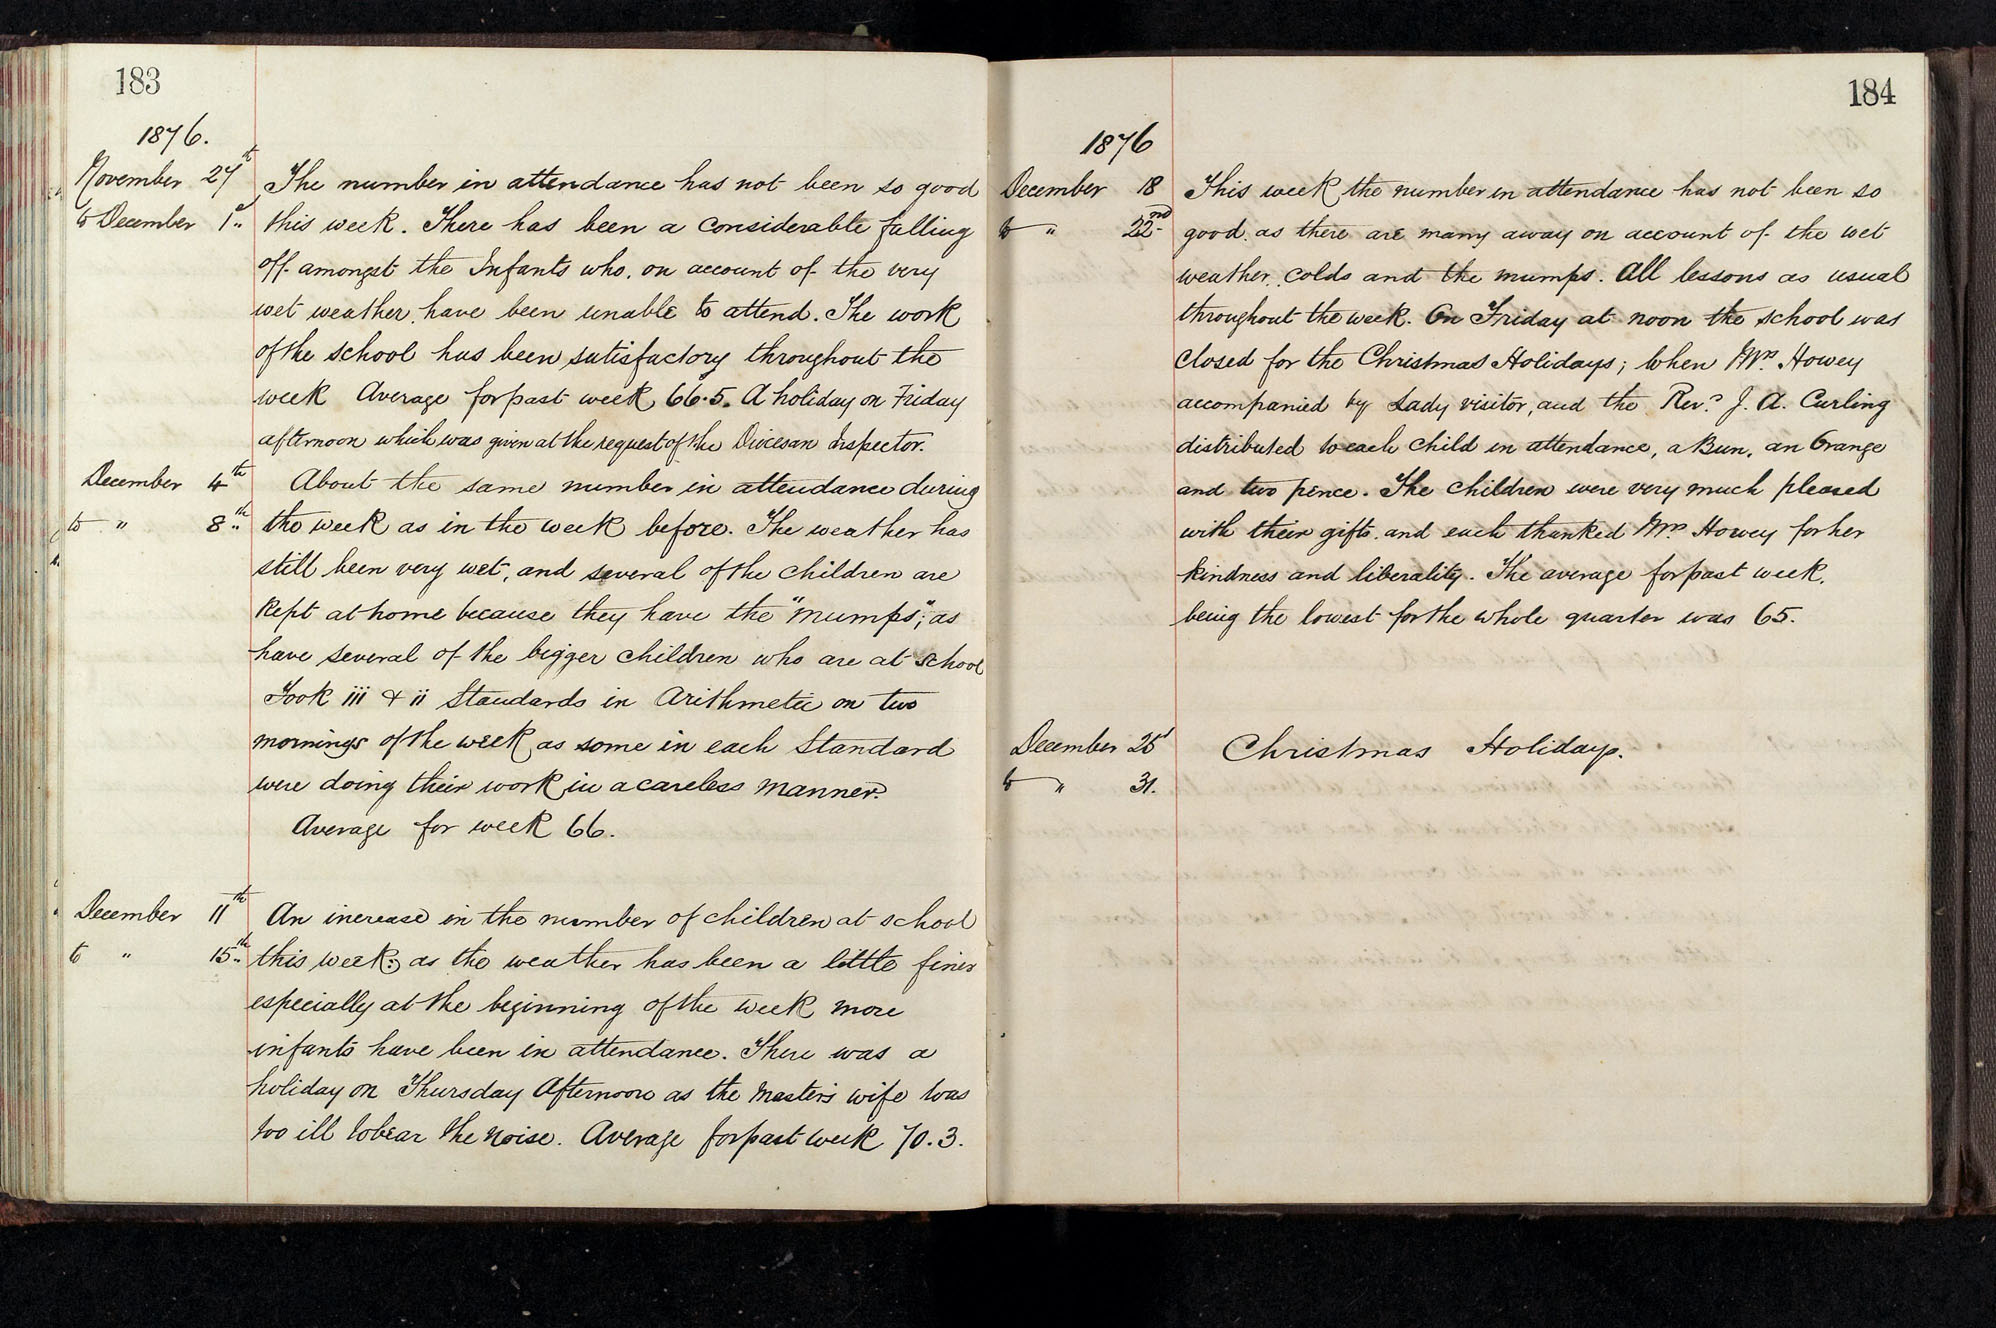 183
1876.
November 27th The number in attendance has not been so good
to December 1st this week. There has been a considerable falling
off amongst the Infants who, on account of the very
wet weather, have been unable to attend. The work
of the school has been satisfactory throughout the
week Average for past week 66.5. A holiday on Friday
afternoon which was given at the request of the Diocesan Inspector.
December 4th About the same number in attendance during
to " 8th the week as in the week before. The weather has
still been very wet, and several of the children are
kept at home because they have the "mumps"; as
have several of the bigger children who are at school
Took iii & ii Standards in Arithmetic on two
mornings of the week, as some in each Standard
were doing their work in a careless manner.
Average for week 66.
December 11th An increase in the number of children at school
to " 15th this week; as the weather has been a little finer
especially at the beginning of the week more
infants have been in attendance. There was a
holiday on Thursday Afternoon as the master's wife was
too ill to bear the noise. Average for past week 70.3.
184
1876
December 18 This week the number in attendance has not been so
to " 22nd good, as there are many away on account of the wet
weather, colds and the mumps. All lessons as usual
throughout the week. On Friday at noon the school was
closed for the Christmas Holidays; when Mrs. Howey
accompanied by Lady visitor, and the Revd. J. A. Curling
distributed to each child in attendance, a Bun, an Orange
and two pence. The children were very much pleased
with their gifts, and each thanked Mrs. Howey for her
kindness and liberality. The average for past week,
being the lowest for the whole quarter was 65.
December 25 Christmas Holidays.
to " 31.